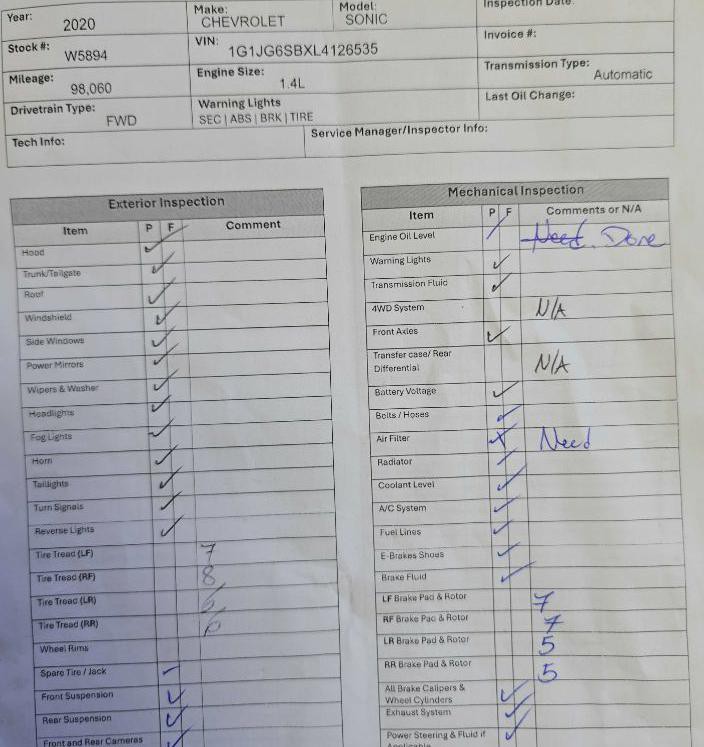 Year: 2020 Make: CHEVROLET Model: SONIC Inspection Date:
Stock #: W5894 VIN: 1G1JG6SBXL4126535 Invoice #:
Mileage: 98,060 Engine Size: 1.4L Transmission Type: Automatic
Drivetrain Type: FWD Warning Lights SEC | ABS | BRK | TIRE Last Oil Change:
Tech Info: Service Manager/Inspector Info:
Exterior Inspection
Item P F Comment
Hood ✓
Trunk/Tailgate ✓
Roof ✓
Windshield ✓
Side Windows ✓
Power Mirrors ✓
Wipers & Washer ✓
Headlights ✓
Fog Lights ✓
Horn ✓
Taillights ✓
Turn Signals ✓
Reverse Lights ✓
Tire Tread (LF) 7
Tire Tread (RF) 8
Tire Tread (LR) 6
Tire Tread (RR) 6
Wheel Rims
Spare Tire / Jack
Front Suspension ✓
Rear Suspension ✓
Front and Rear Cameras ✓
Mechanical Inspection
Item P F Comments or N/A
Engine Oil Level Need. Done
Warning Lights ✓
Transmission Fluid ✓
4WD System N/A
Front Axles ✓
Transfer case/ Rear
Differential N/A
Battery Voltage ✓
Belts / Hoses ✓
Air Filter Need
Radiator ✓
Coolant Level ✓
A/C System ✓
Fuel Lines ✓
E-Brakes Shoes ✓
Brake Fluid ✓
LF Brake Pad & Rotor 7
RF Brake Pad & Rotor 7
LR Brake Pad & Rotor 5
RR Brake Pad & Rotor 5
All Brake Calipers &
Wheel Cylinders ✓
Exhaust System ✓
Power Steering & Fluid if
Applicable ✓